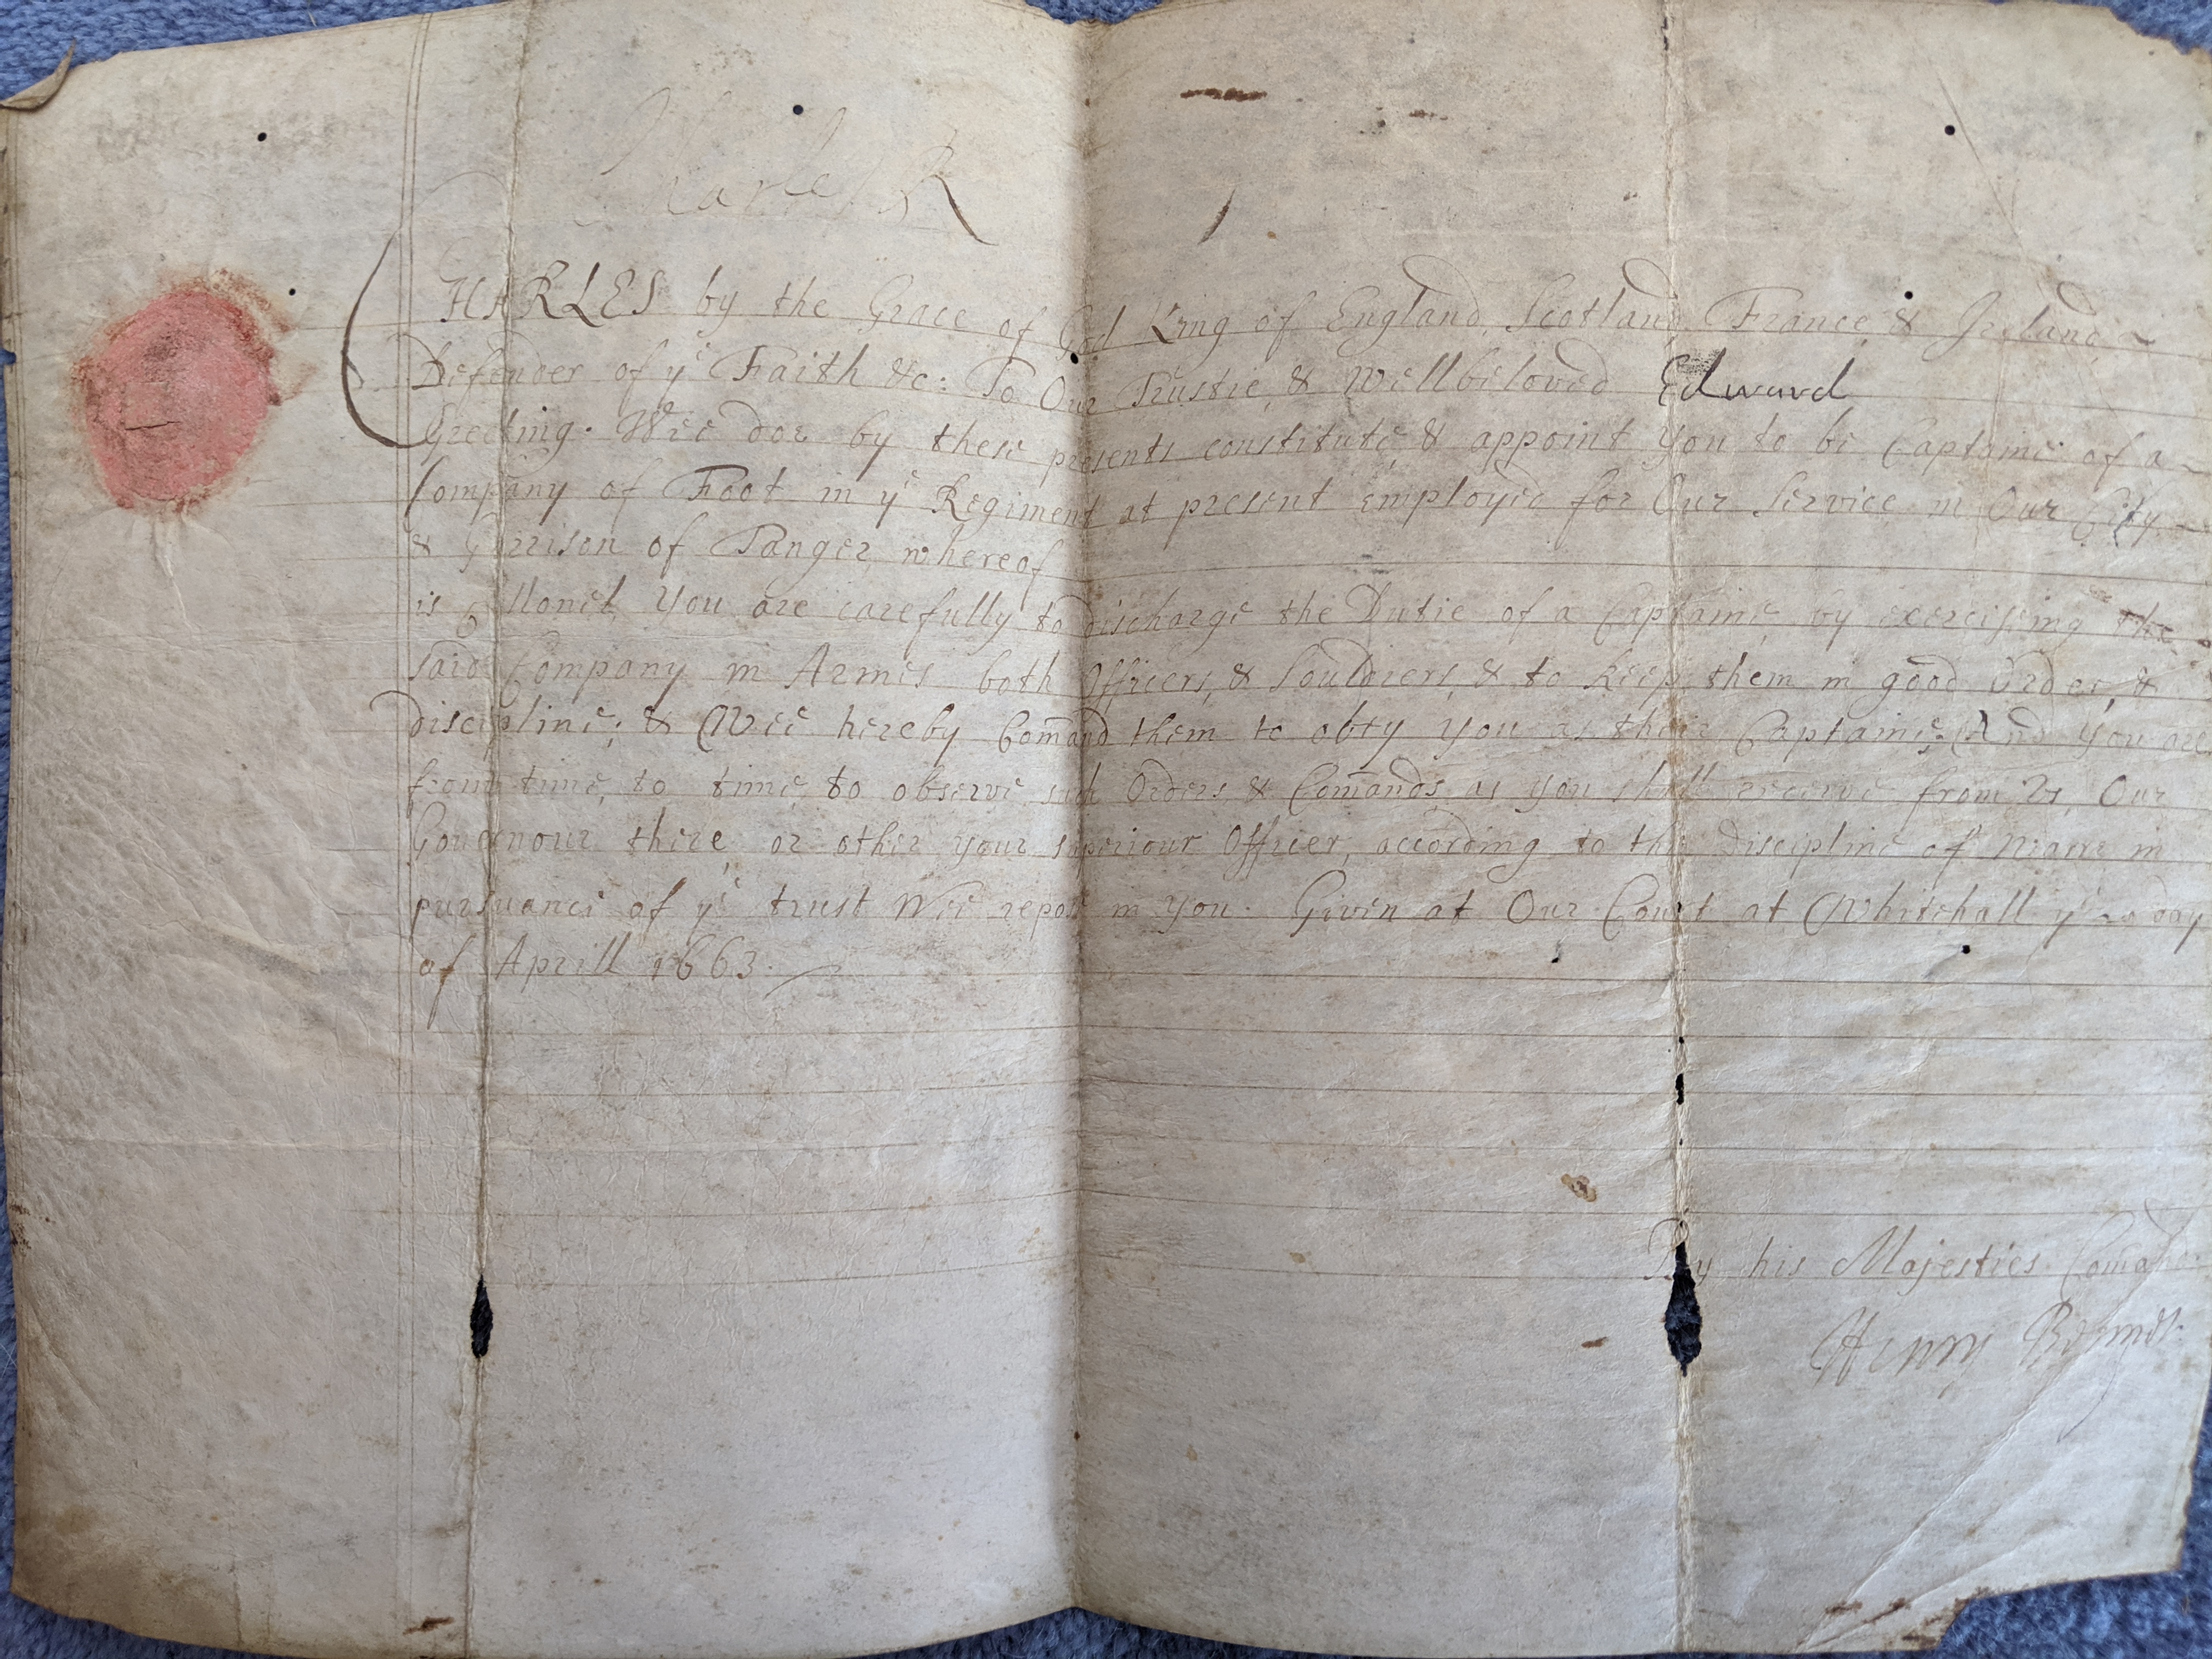 Charles R
CHARLES by the Grace of God King of England, Scotland, France, & Ireland,
Defender of yᵉ Faith &c: To Our Trustie, & Wellbeloved Edward
Greeting. Wee doe by these presents constitute, & appoint you to be Captaine of a
Company of Foot in yᵉ Regiment at present employed for Our Service in Our City
& Garrison of Tanger, whereof
is Collonel, You are carefully to discharge the Dutie of a Captaine, by exerciseing the
said Company in Armes both Officers, & Souldiers, & to keep them in good Order, &
discipline; & Wee hereby Com̄and them to obey you as their Captaine; And You are
from time, to time, to observe such Orders & Com̄ands as you shall receive from Us, Our
Governour there, or other your superiour Officer, according to the Discipline of Warre in
pursuance of yᵉ trust Wee repose in you. Given at Our Court at Whitehall yᵉ day
of Aprill 1663.
By his Majesties Comand
Henry Bennet